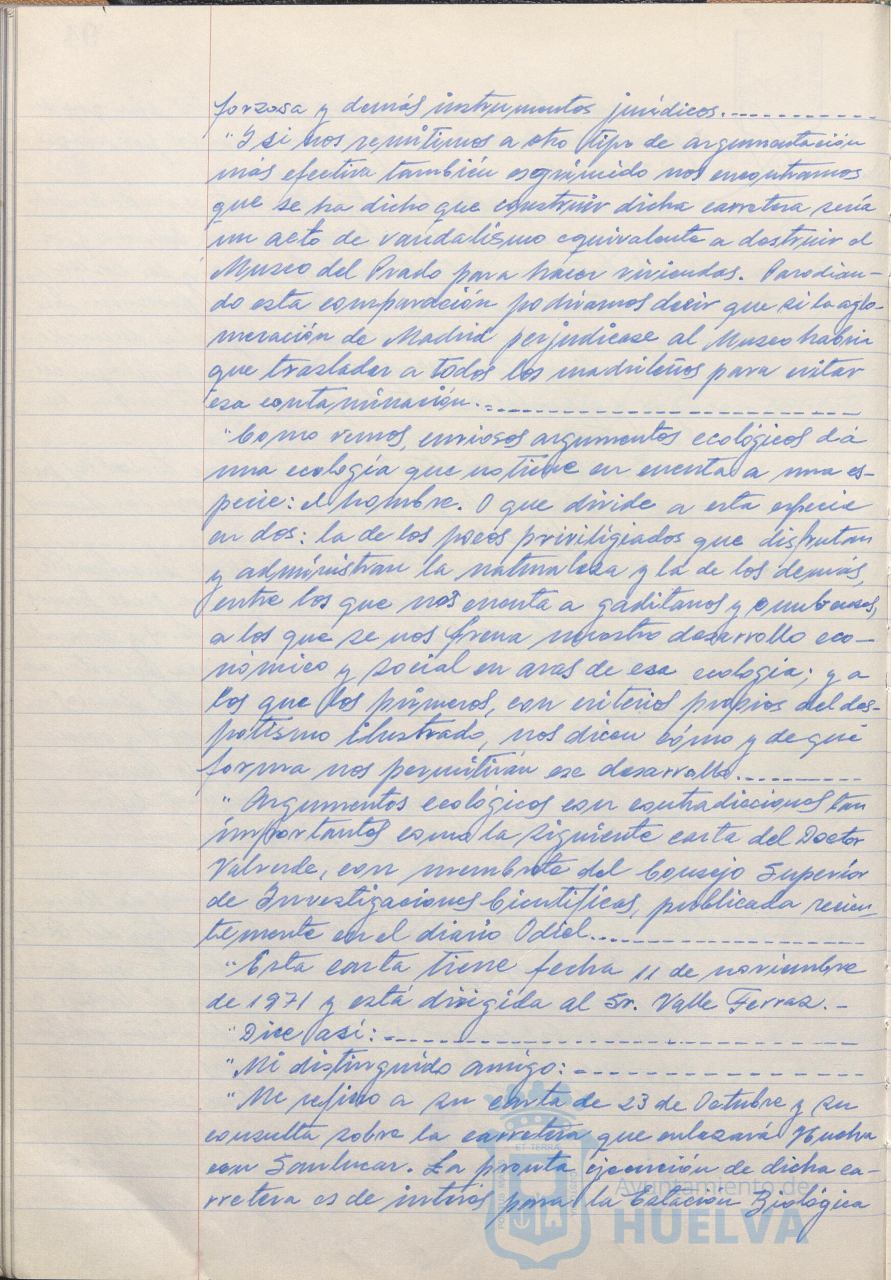 forzosa y demás instrumentos jurídicos.
"Y si nos remitimos a otro tipo de argumentación
más efectiva también esgrimido nos encontramos
que se ha dicho que construir dicha carretera sería
un acto de vandalismo equivalente a destruir el
Museo del Prado para hacer viviendas. Parodian-
do esta comparación podríamos decir que si la aglo-
meración de Madrid perjudicase al Museo habría
que trasladar a todos los madrileños para evitar
esa contaminación.
"Como vemos, curiosos argumentos ecológicos dá
una ecología que no tiene en cuenta a una es-
pecie: el hombre. O que divide a esta especie
en dos: la de los pocos priviligiados que disfrutan
y administran la naturaleza y la de los demás,
entre los que nos cuenta a gaditanos y onubenses,
a los que se nos frena nuestro desarrollo eco-
nómico y social en aras de esa ecología; y a
los que los primeros, con criterios propios del des-
potismo ilustrado, nos dicen cómo y de qué
forma nos permitirán ese desarrollo.
"Argumentos ecológicos con contradicciones tan
importantes como la siguiente carta del Doctor
Valverde, con membrete del Consejo Superior
de Investigaciones Científicas, publicada recien-
temente en el diario Odiel.
"Esta carta tiene fecha 11 de noviembre
de 1971 y está dirigida al Sr. Valle Ferraz.-
"Dice así:
"Mi distinguido amigo:
"Me refiero a su carta de 23 de Octubre y su
consulta sobre la carretera que enlazará Huelva
con Sanlucar. La pronta ejecución de dicha ca-
rretera es de interés para la Estación Biológica
ET TERRA
Ayuntamiento de
HUELVA